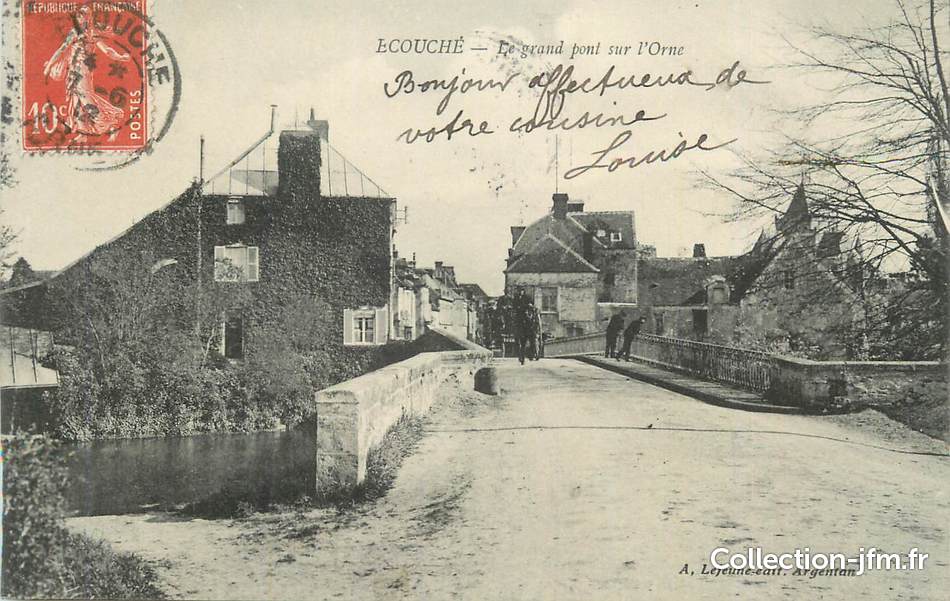 RÉPUBLIQUE FRANÇAISE
10c
POSTES
ECOUCHÉ
ECOUCHÉ — Le grand pont sur l'Orne
Bonjour affectueux de
votre cousine
Louise
Collection-jfm.fr
A, Lejeune-édit. Argentan